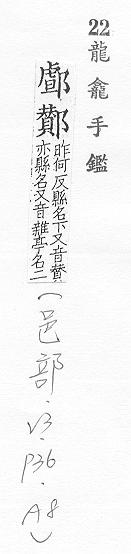 22 龍龕手鑑
䣜鄼
昨何反縣名下又音賛
亦縣名又音名二
(邑部.V3.P36.A8)